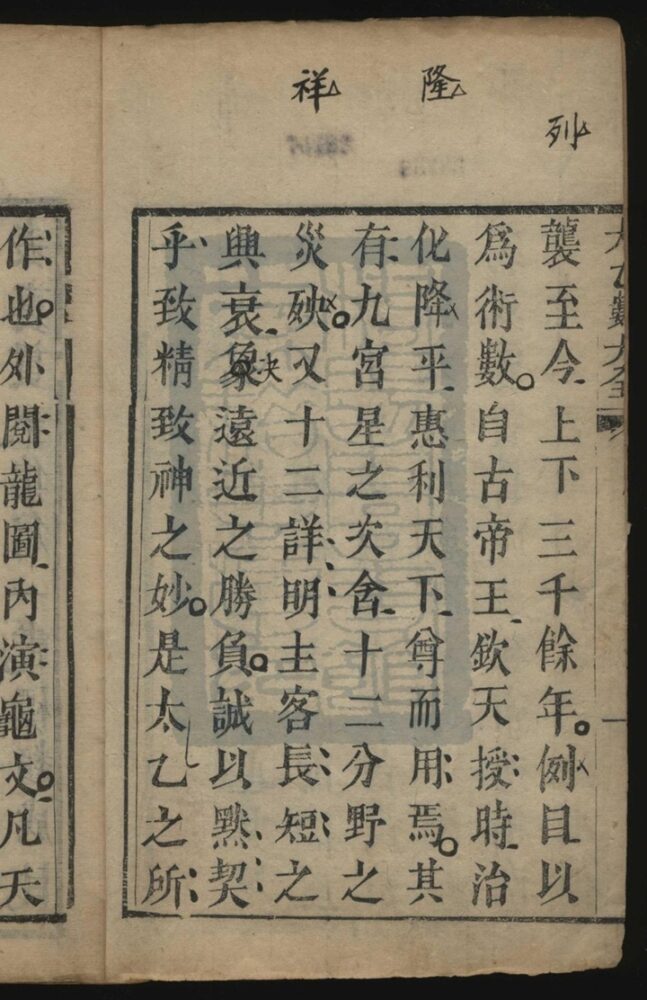 列
隆
祥
太乙數大全
襲至今上下三千餘年。例目以
爲術數。自古帝王欽天授時治
化降平惠利天下尊而用焉。其
有九宮星之次舍十二分野之
災殃。又十二詳明主客長短之
興衰象决遠近之勝負。誠以黙契
乎致精致神之妙。是太乙之所
作也。外閱龍圖內演龜文。凡天